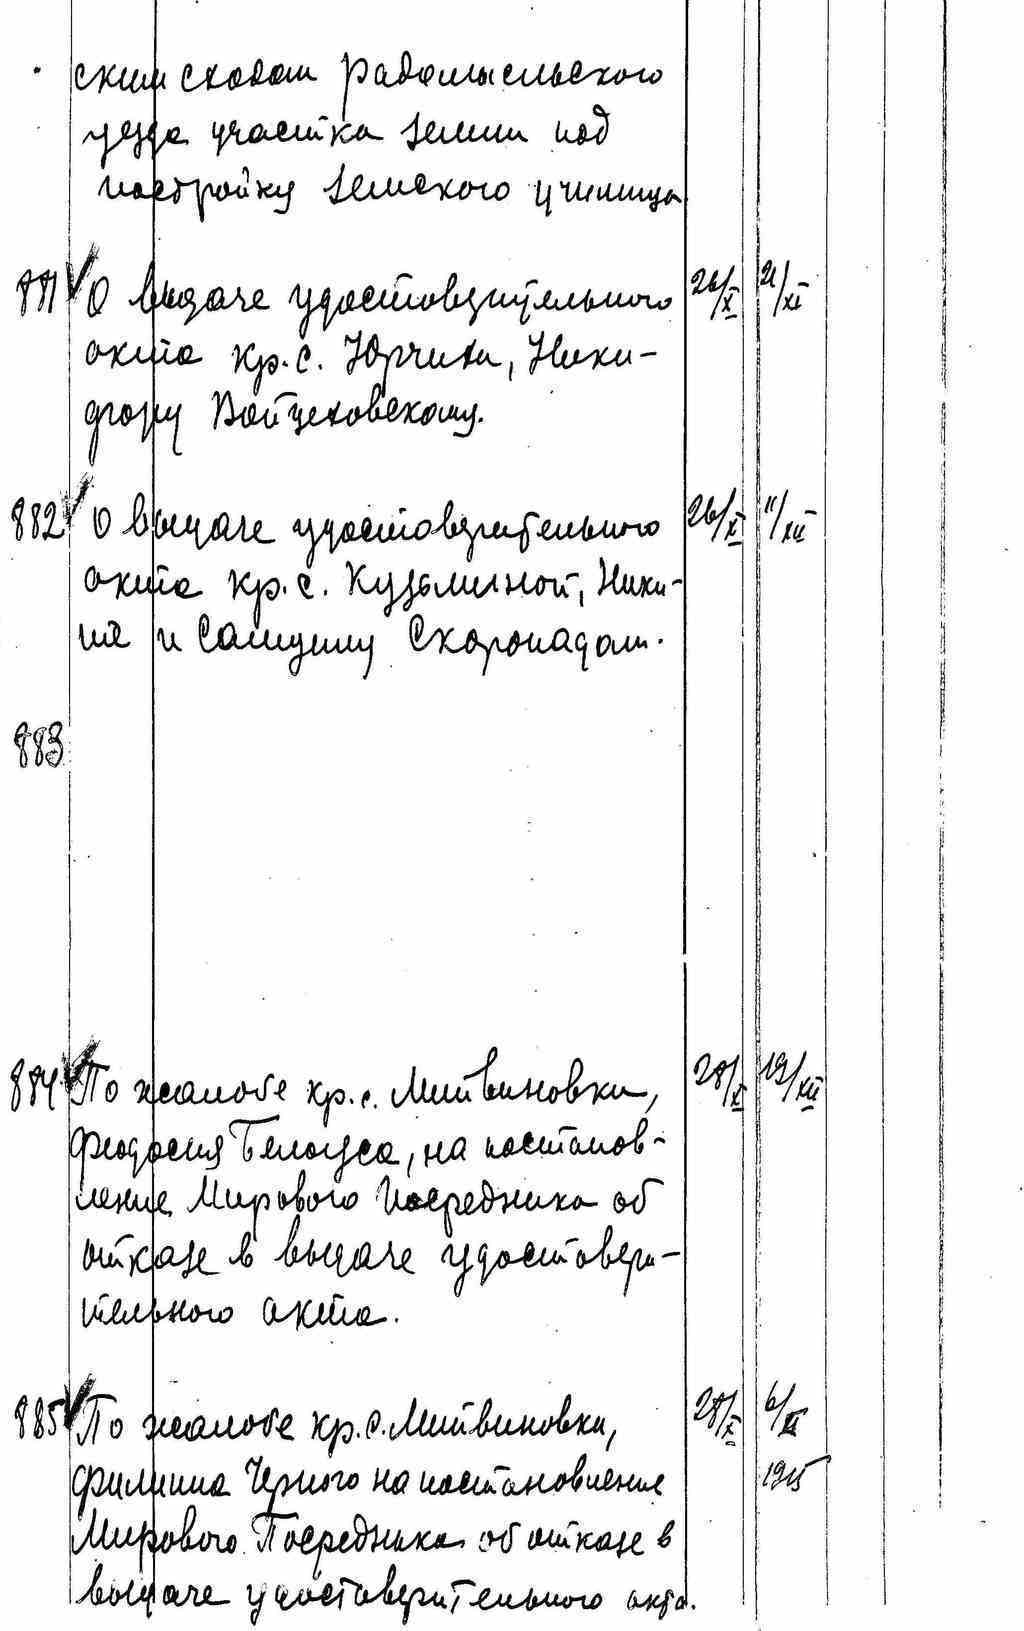 ским сходом Радомысльского
уезда участка земли под
постройку земского училища
881 О выдаче удостоверительного 26/X 21/XI
акта кр. с. Юрчихи, Ники-
фору Войцеховскому.
882 О выдаче удостоверительного 26/X 11/XII
акта кр. с. Кузьминой, Ники-
те и Самуилу Скоропадам.
883
884 По жалобе кр. с. Литвиновки, 28/X 19/XII
Феодосия Белоуса, на постанов-
ление Мирового Посредника об
отказе в выдаче удостовери-
тельного акта.
885 По жалобе кр. с. Литвиновки, 28/X
Филиппа Черного на постановление 1915
Мирового Посредника об отказе в
выдаче удостоверительного акта.